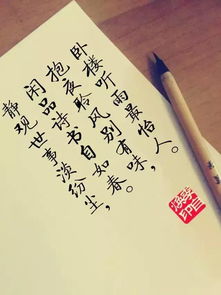 卧楼听雨最怡人。
抱夜聆风别有味，
闲品诗书自如春。
静观世事淡纷尘，